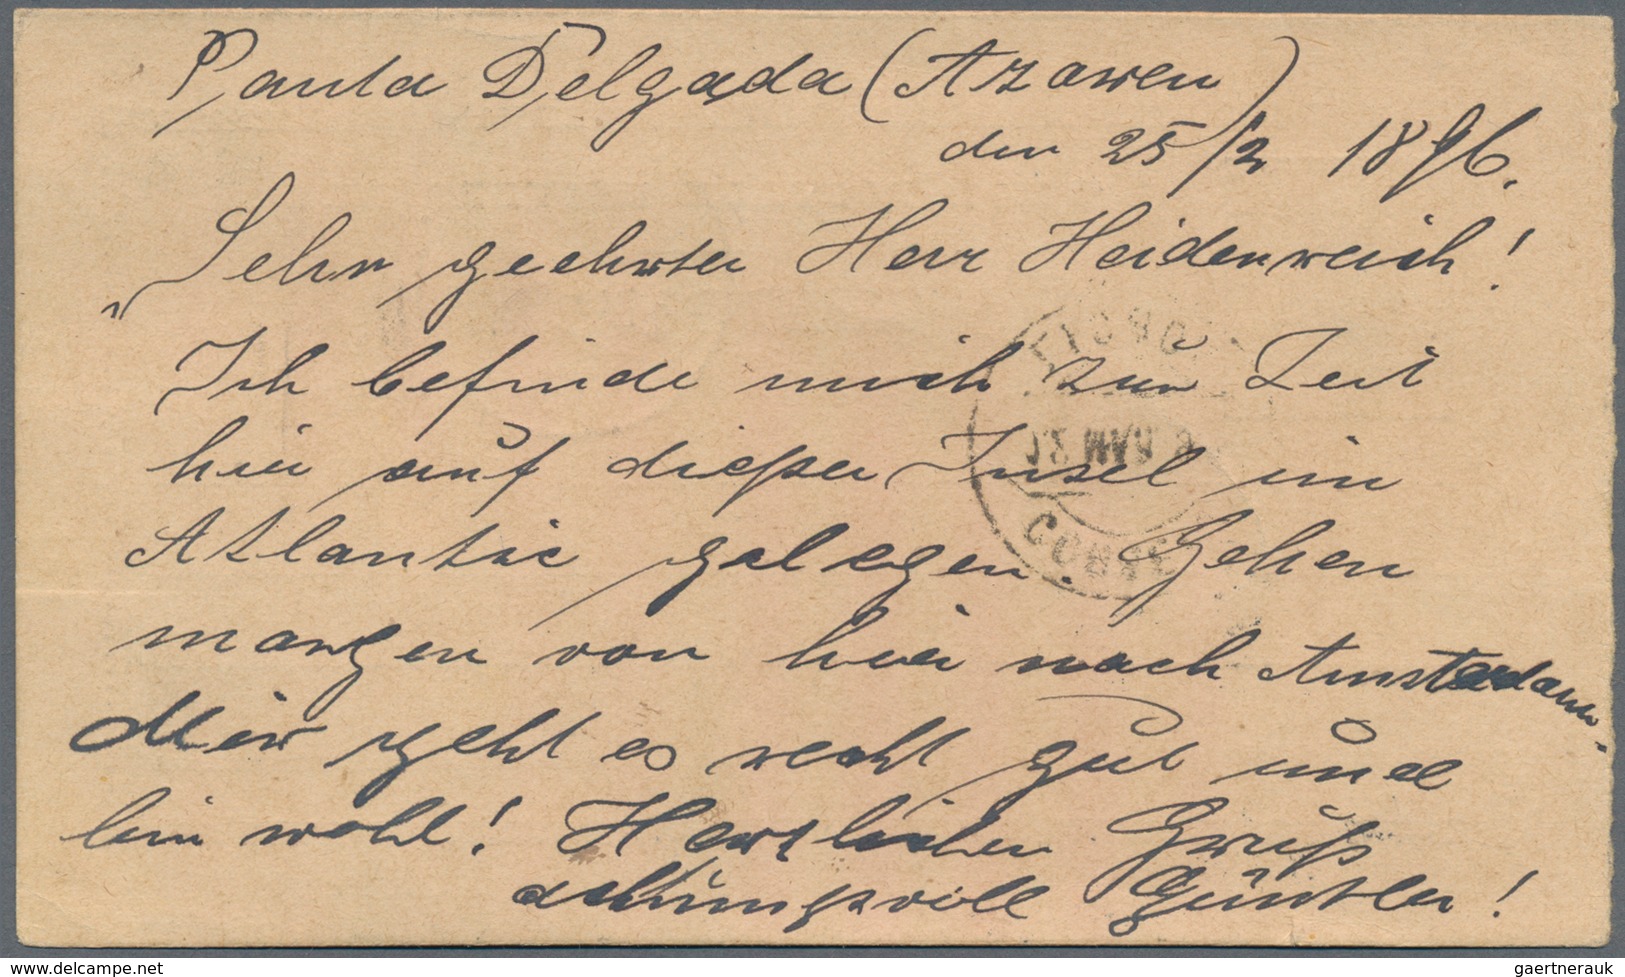 Ponta Delgada (Azoren)
den 25/2 1896.
Sehr geehrter Herr Heidenreich!
Ich befinde mich zur Zeit
hier auf dießer Insel im
Atlantic gelegen. Gehen
morgen von hier nach Amsterdam.
Mir geht es recht gut und
bin wohl! Herzlichen Gruß
achtungsvoll Günther!
MAR
CORRE
www.delcampe.net
gaertnerauk